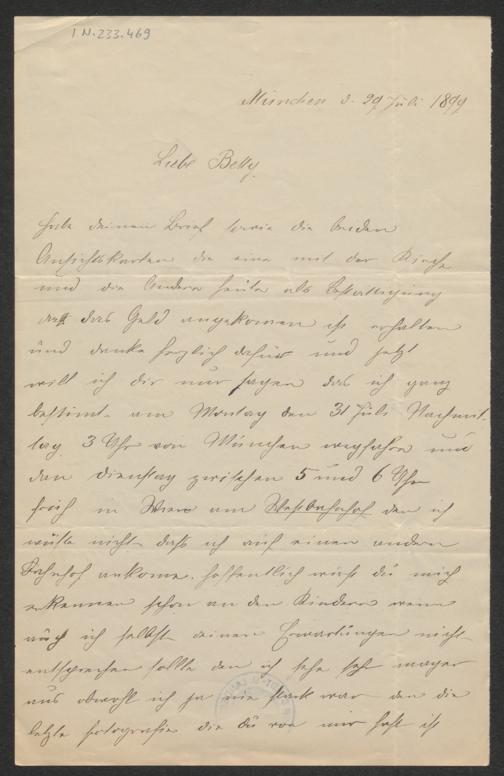 I.N. 233.469
München d. 29 Juli 1899
Liebe Betty
habe deinen Brief sowie die beiden
Ansichtskarten die eine mit der Kirche
und die Andere heute als Bestättigung
daß das Geld angekomen ist erhalten
und danke herzlich dafür und jetzt
will ich dir nur sagen das ich ganz
bestimt am Montag den 31 Juli Nachmit
tag 3 Uhr von München wegfahre und
den Dienstag zwischen 5 und 6 Uhr
früh in Wien am Westbahnhof den ich
wüßte nicht daß ich auf einen andern
Bahnhof ankome. hoffentlich wirst du mich
erkennen schon an den Kindern wenn
auch ich selbst deinen Erwartungen nicht
entsprechen sollte den ich sehe sehr mager
aus obwohl ich ja nie stark war den die
letzte Fotografie die du von mir hast ist